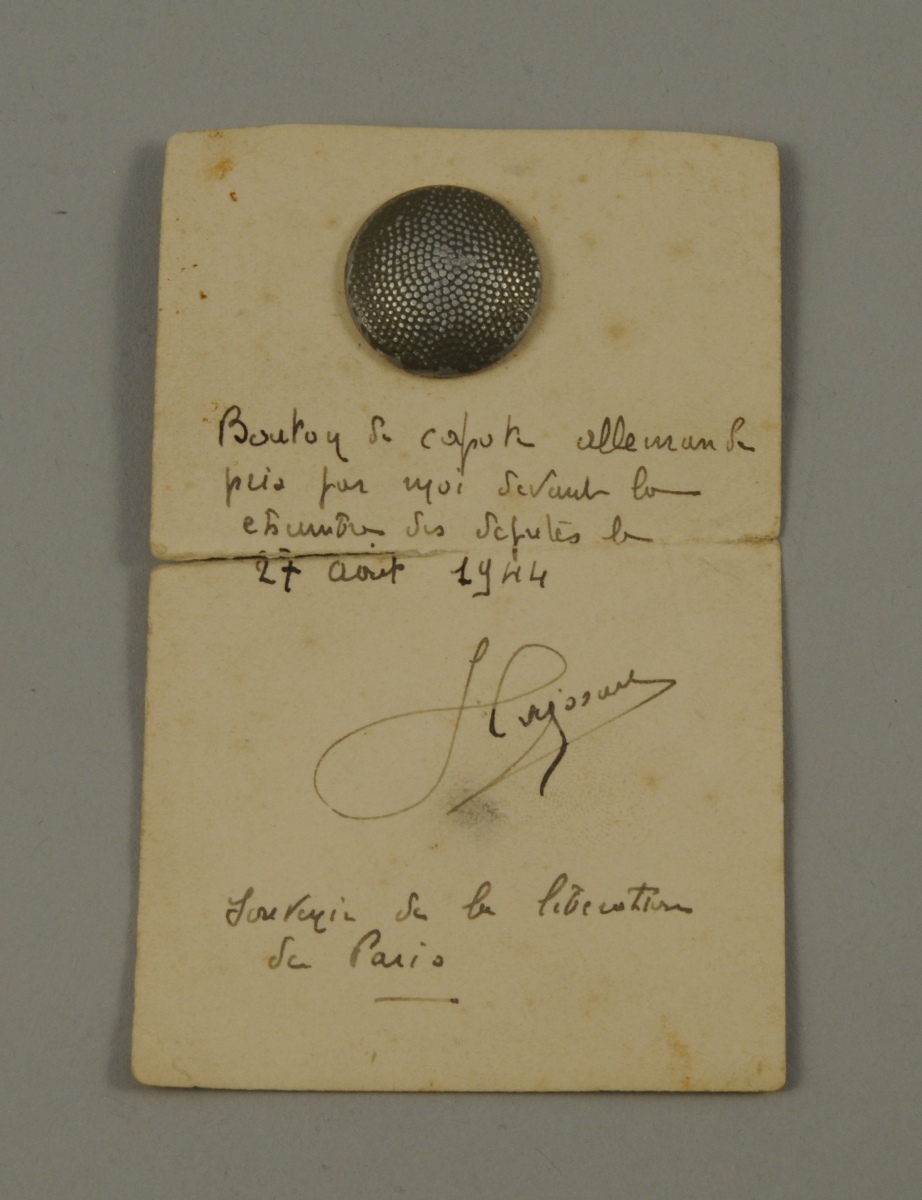 Bouton de capote allemande
pris par moi devant la
chambre des députés le
27 Août 1944
Souvenir de la libération
de Paris